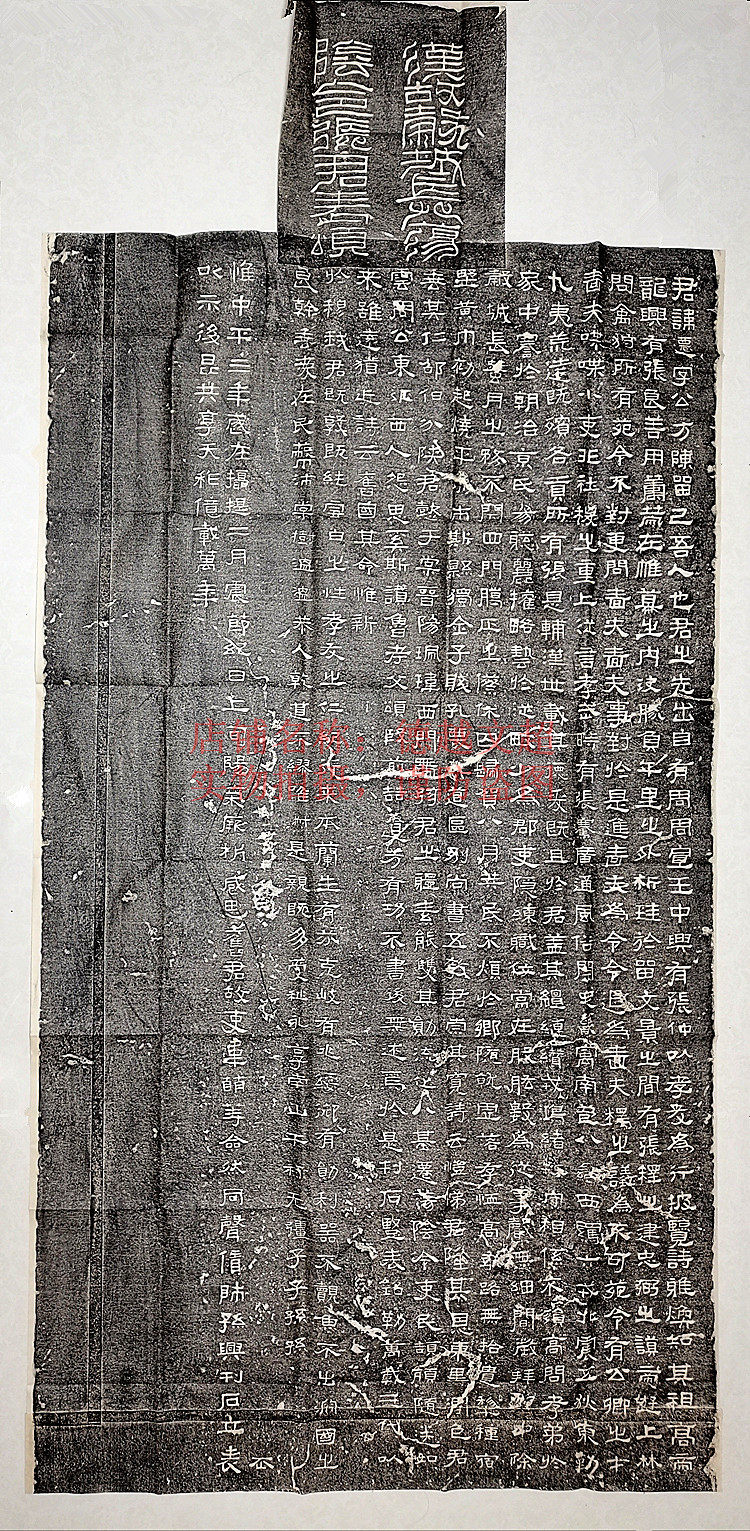 漢故穀城長蕩
陰令張君表頌
君諱遷字公方陳留己吾人也君之先出自有周周宣王中興有張仲以孝友為行披覽詩雅煥知其祖高帝
龍興有張良善用籌策在帷幕之內決勝負千里之外析珪於留文景之間有張釋之建忠弼之謨帝遊上林
問禽狩所有苑令不對更問嗇夫嗇夫事對於是進嗇夫為令令退為嗇夫釋之議為不可苑令有公卿之才
嗇夫喋喋小吏非社稷之重上從言孝武時有張騫廣通風俗開定畿寓南苞八蠻西羈六戎北震五狄東勤
九夷荒遠既殯各貢所有張是輔漢世載其德爰既且於君蓋其繵縺纘戎鴻緒牧守相係不殞高問孝弟於
家中謇於朝治京氏易聰麗權略藝於從畋少為郡吏隱練職位常在股肱數為從事聲無細聞徵拜郎中除
穀城長蠶月之務不閉四門臘正之僚休囚歸賀八月筭民不煩於鄉隨就虛落存恤高年路無拾遺犁種宿
野黃巾初起燒平城市斯縣獨全子賤孔蔑其道區別尚書五教君崇其寬詩云愷悌君隆其恩東里潤色君
垂其仁邵伯分陝君懿于棠晉陽珮瑋西門帶弦君之體素能雙其勛流化八基遷蕩陰令吏民頡頏隨送如
雲周公東征西人怨思奚斯讚魯考父頌殷前喆遺芳有功不書後無述焉於是刊石豎表銘勒萬載三代以
來雖遠猶近詩云舊國其命惟新
於穆我君既敦既純雪白之性孝友之仁紀行來本蘭生有芬克岐有兆綏御有勛利器不覿魚不出淵國之
良幹垂愛在民蔽沛棠樹溫溫恭人乾道不繆唯淑是親既多受祉永享南山干祿無疆子子孫孫
惟中平三年歲在攝提二月震節紀日上旬陽氣厥析感思舊君故吏韋萌等僉然同聲賃師孫興刊石立表
以示後昆共享天祚億載萬年
店铺名称：德越文超
实物拍摄，谨防盗图